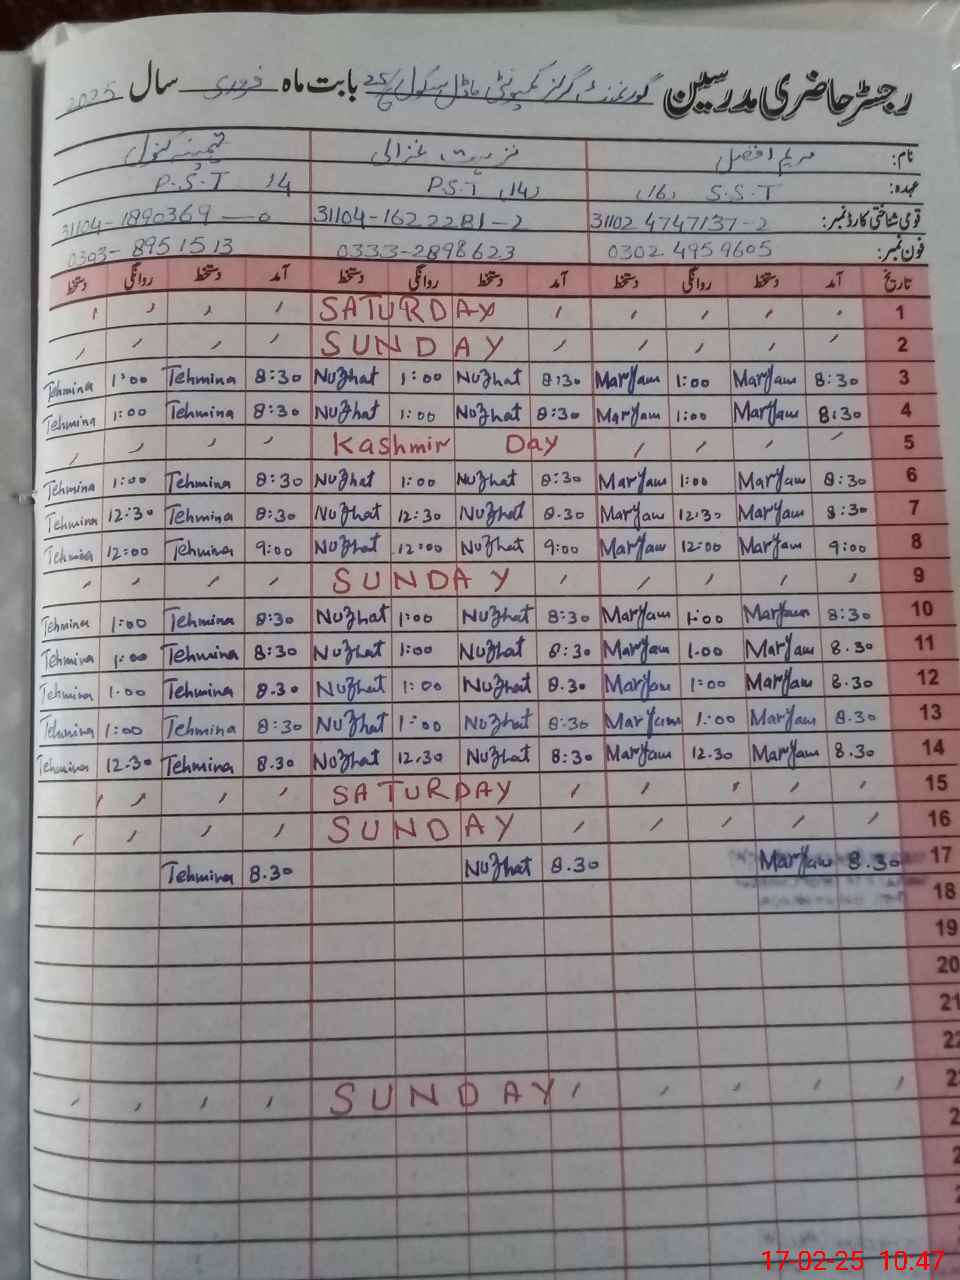 رجسٹر حاضری مدرسین گورنمنٹ گرلز کمیونٹی ماڈل سکول 25 بابت ماہ فروری سال 2025
نام: مریم افضل نزہت غزالی تہمینہ کنول
عہدہ: S.S.T (16) P.S.T (14) P.S.T 14
قومی شناختی کارڈ نمبر: 31102 4747137-2 31104-1622281-2 31104-1890369-0
فون نمبر: 0302 4959605 0333-2898623 0303-8951513
تاریخ آمد دستخط روانگی دستخط آمد دستخط روانگی دستخط آمد دستخط روانگی دستخط
SATURDAY 1
SUNDAY 2
Tehmina 1:00 Tehmina 8:30 Nuzhat 1:00 Nuzhat 8:30 Maryam 1:00 Maryam 8:30 3
Tehmina 1:00 Tehmina 8:30 Nuzhat 1:00 Nuzhat 8:30 Maryam 1:00 Maryam 8:30 4
Kashmir Day 5
Tehmina 1:00 Tehmina 8:30 Nuzhat 1:00 Nuzhat 8:30 Maryam 1:00 Maryam 8:30 6
Tehmina 12:30 Tehmina 8:30 Nuzhat 12:30 Nuzhat 8.30 Maryam 12:30 Maryam 8:30 7
Tehmina 12:00 Tehmina 9:00 Nuzhat 12:00 Nuzhat 9:00 Maryam 12:00 Maryam 9:00 8
SUNDAY 9
Tehmina 1:00 Tehmina 8:30 Nuzhat 1:00 Nuzhat 8:30 Maryam 1:00 Maryam 8:30 10
Tehmina 1:00 Tehmina 8:30 Nuzhat 1:00 Nuzhat 8:30 Maryam 1.00 Maryam 8.30 11
Tehmina 1.00 Tehmina 8.30 Nuzhat 1:00 Nuzhat 8.30 Maryam 1:00 Maryam 8.30 12
Tehmina 1:00 Tehmina 8:30 Nuzhat 1:00 Nuzhat 8:30 Maryam 1:00 Maryam 8.30 13
Tehmina 12.30 Tehmina 8.30 Nuzhat 12.30 Nuzhat 8:30 Maryam 12.30 Maryam 8.30 14
SATURDAY 15
SUNDAY 16
Tehmina 8.30 Nuzhat 8.30 Maryam 8.30 17
18
19
20
21
22
SUNDAY
17-02-25 10.47